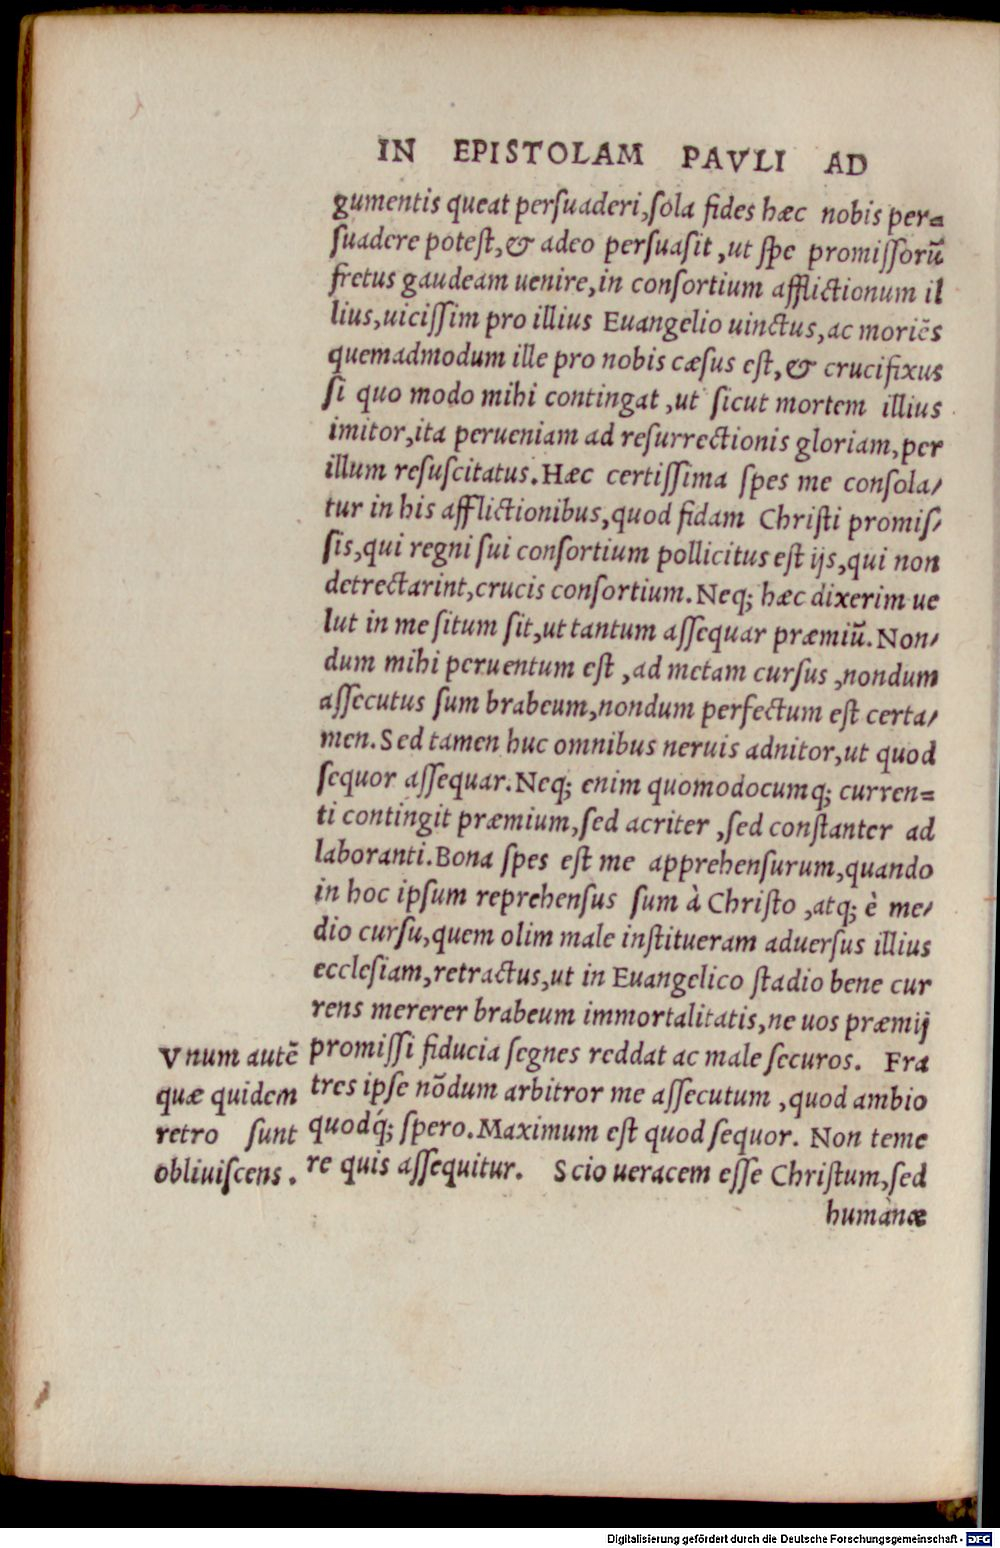 IN EPISTOLAM PAVLI AD
gumentis queat perſuaderi,ſola fides hæc nobis per=
ſuadere poteſt,& adeo perſuaſit ,ut ſpe promiſſorũ
fretus gaudeam uenire,in conſortium afflictionum il
lius,uiciſſim pro illius Euangelio uinctus,ac moriẽs
quemadmodum ille pro nobis cæſus eſt,& crucifixus
ſi quo modo mihi contingat ,ut ſicut mortem illius
imitor,ita perueniam ad reſurrectionis gloriam,per
illum reſuſcitatus.Hæc certiſſima ſpes me conſola/
tur in his afflictionibus,quod fidam Chriſti promiſ/
ſis,qui regni ſui conſortium pollicitus eſt ijs,qui non
detrectarint,crucis conſortium.Neq; hæc dixerim ue
lut in me ſitum ſit,ut tantum aſſequar præmiũ.Non/
dum mihi peruentum eſt ,ad metam curſus ,nondum
aſſecutus ſum brabeum,nondum perfectum eſt certa/
men.Sed tamen huc omnibus neruis adnitor,ut quod
ſequor aſſequar.Neq; enim quomodocumq; curren=
ti contingit præmium,ſed acriter ,ſed conſtanter ad
laboranti.Bona ſpes eſt me apprehenſurum,quando
in hoc ipſum reprehenſus ſum à Chriſto ,atq; è me/
dio curſu,quem olim male inſtitueram aduerſus illius
eccleſiam,retractus,ut in Euangelico ſtadio bene cur
rens mererer brabeum immortalitatis,ne uos præmij
promiſſi fiducia ſegnes reddat ac male ſecuros. Fra
tres ipſe nõdum arbitror me aſſecutum ,quod ambio
quodq́; ſpero.Maximum eſt quod ſequor. Non teme
re quis aſſequitur. Scio ueracem eſſe Chriſtum,ſed
humanæ
Vnum autẽ
quæ quidem
retro ſunt
obliuiſcens.
Digitalisierung gefördert durch die Deutsche Forschungsgemeinschaft - DFG